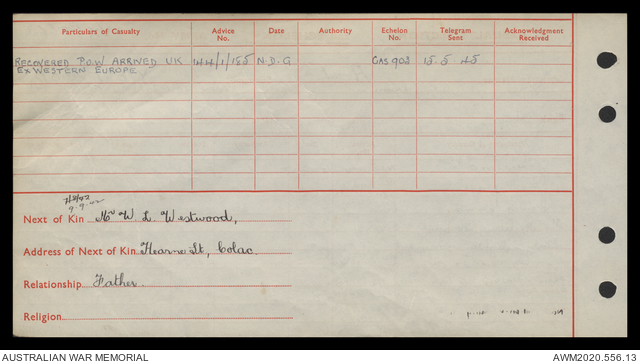 Particulars of Casualty Advice No. Date Authority Echelon No. Telegram Sent Acknowledgment Received
RECOVERED P.O.W ARRIVED UK 144/1/185 N.D.G CAS 902 15.5.45
EX WESTERN EUROPE
9.9.42
Next of Kin Mr W. L. Westwood,
Address of Next of Kin Hearne St, Colac.
Relationship Father.
Religion
AUSTRALIAN WAR MEMORIAL AWM2020.556.13